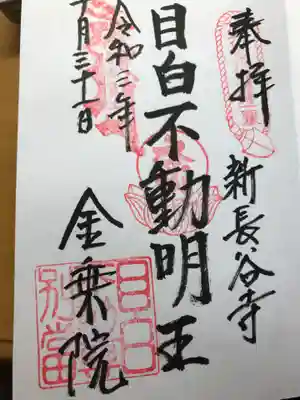 奉拝
新長谷寺
目白不動明王
令和二年
十月三十一日
金乗院
目白
別當